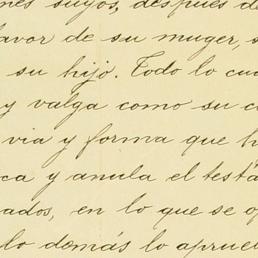 nes suyos, despues de
favor de su muger, s
su hijo. Todo lo cua
y valga como su c
via y forma que h
ca y anula el testa
ados, en lo que se op
lo demás lo aprue